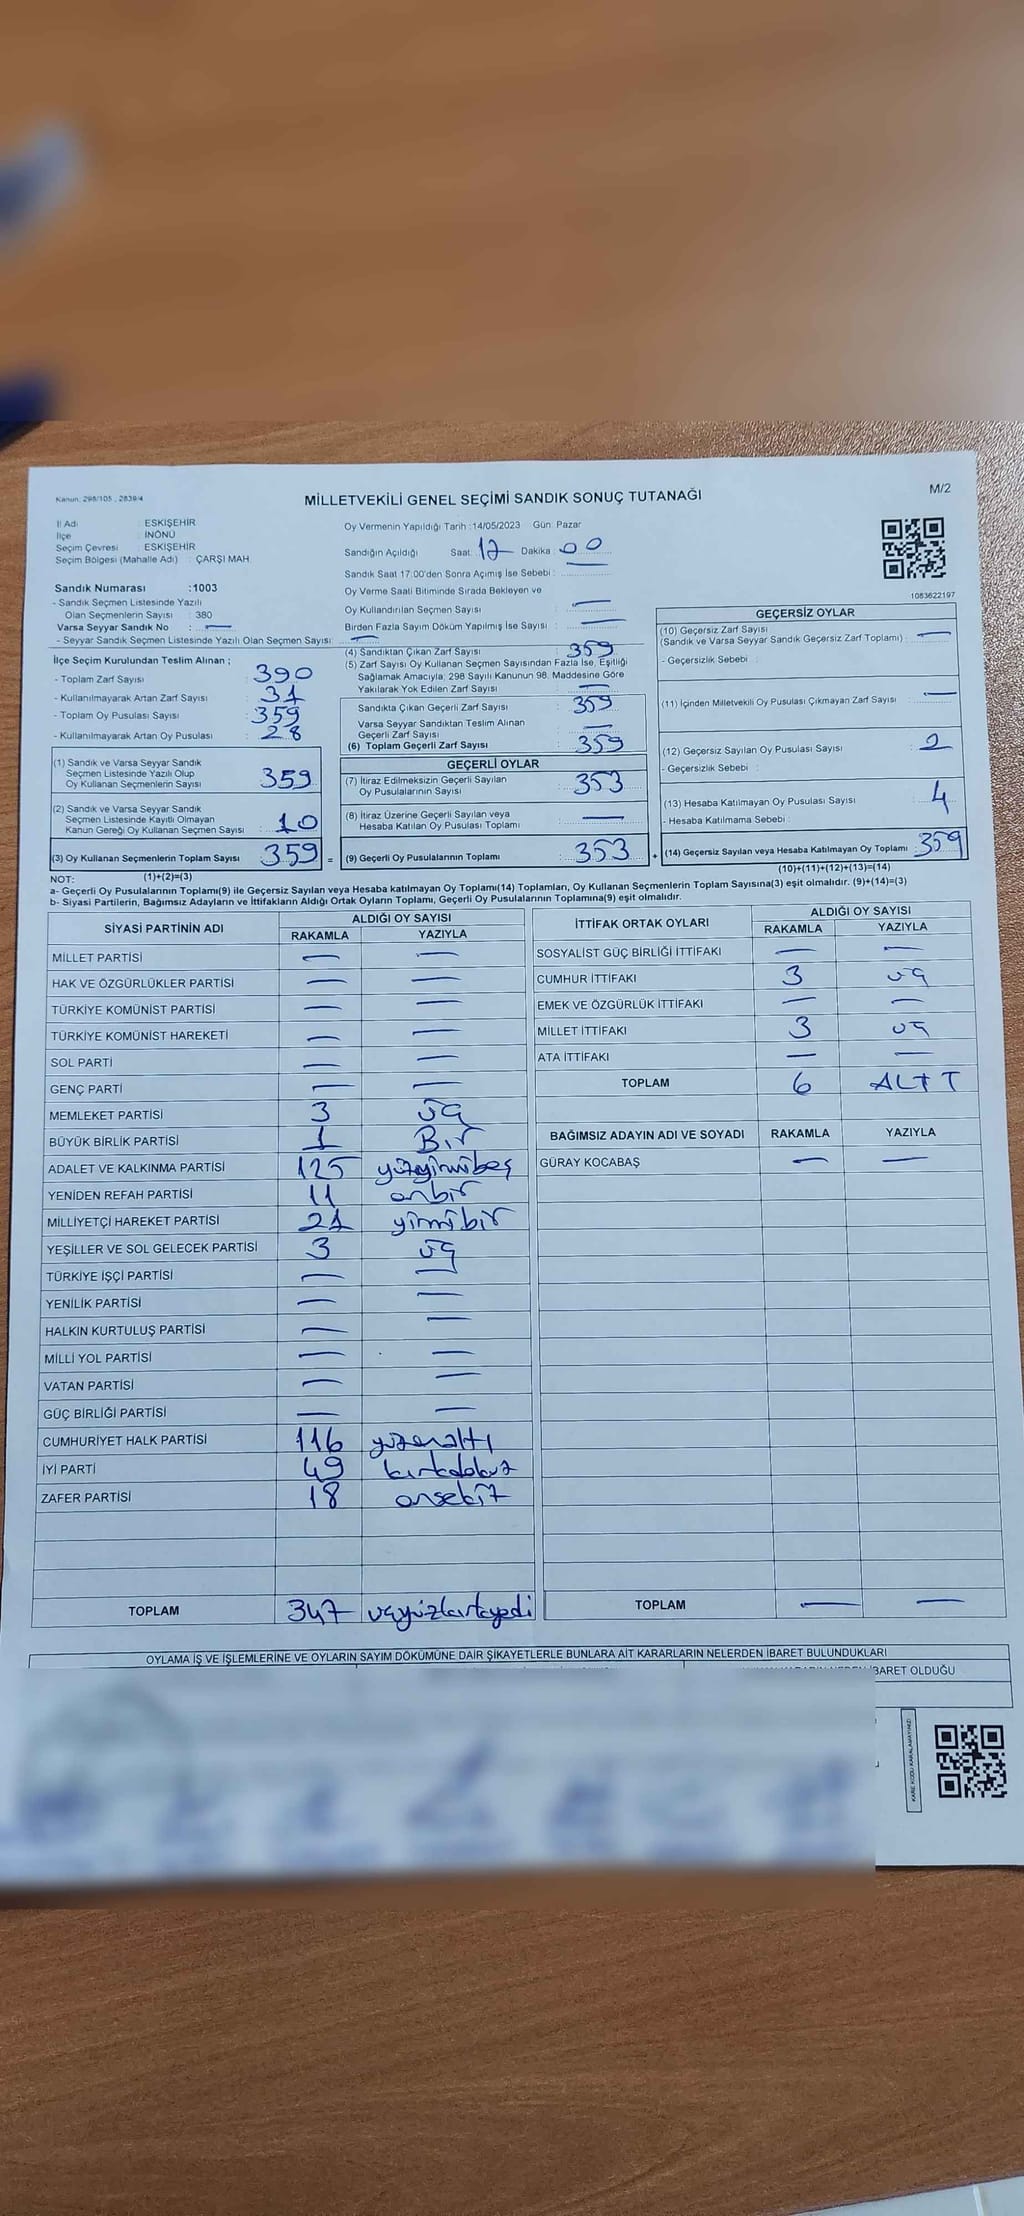 Kanun: 298/105 , 2839/4
MİLLETVEKİLİ GENEL SEÇİMİ SANDIK SONUÇ TUTANAĞI
M/2
İl Adı : ESKİŞEHİR
İlçe : İNÖNÜ
Seçim Çevresi : ESKİŞEHİR
Seçim Bölgesi (Mahalle Adı) : ÇARŞI MAH.
Sandık Numarası :1003
- Sandık Seçmen Listesinde Yazılı
Olan Seçmenlerin Sayısı : 380
Varsa Seyyar Sandık No : —
- Seyyar Sandık Seçmen Listesinde Yazılı Olan Seçmen Sayısı: —
Oy Vermenin Yapıldığı Tarih :14/05/2023 Gün: Pazar
Sandığın Açıldığı Saat: 17 Dakika: 00
Sandık Saat 17.00'den Sonra Açımış İse Sebebi : —
Oy Verme Saati Bitiminde Sırada Bekleyen ve
Oy Kullandırılan Seçmen Sayısı : —
Birden Fazla Sayım Döküm Yapılmış İse Sayısı : —
1083622197
İlçe Seçim Kurulundan Teslim Alınan ;
- Toplam Zarf Sayısı : 390
- Kullanılmayarak Artan Zarf Sayısı : 31
- Toplam Oy Pusulası Sayısı : 359
- Kullanılmayarak Artan Oy Pusulası : 28
(1) Sandık ve Varsa Seyyar Sandık
Seçmen Listesinde Yazılı Olup
Oy Kullanan Seçmenlerin Sayısı : 359
(2) Sandık ve Varsa Seyyar Sandık
Seçmen Listesinde Kayıtlı Olmayan
Kanun Gereği Oy Kullanan Seçmen Sayısı : 10
(3) Oy Kullanan Seçmenlerin Toplam Sayısı : 359 =
(1)+(2)=(3)
(4) Sandıktan Çıkan Zarf Sayısı : 359
(5) Zarf Sayısı Oy Kullanan Seçmen Sayısından Fazla İse, Eşitliği
Sağlamak Amacıyla; 298 Sayılı Kanunun 98. Maddesine Göre
Yakılarak Yok Edilen Zarf Sayısı : —
Sandıkta Çıkan Geçerli Zarf Sayısı : 359
Varsa Seyyar Sandıktan Teslim Alınan
Geçerli Zarf Sayısı : —
(6) Toplam Geçerli Zarf Sayısı : 359
GEÇERLİ OYLAR
(7) İtiraz Edilmeksizin Geçerli Sayılan
Oy Pusulalarının Sayısı : 353
(8) İtiraz Üzerine Geçerli Sayılan veya
Hesaba Katılan Oy Pusulası Toplamı : —
(9) Geçerli Oy Pusulalarının Toplamı : 353 +
GEÇERSİZ OYLAR
(10) Geçersiz Zarf Sayısı
(Sandık ve Varsa Seyyar Sandık Geçersiz Zarf Toplamı) : —
- Geçersizlik Sebebi :
(11) İçinden Milletvekili Oy Pusulası Çıkmayan Zarf Sayısı : —
(12) Geçersiz Sayılan Oy Pusulası Sayısı : 2
- Geçersizlik Sebebi :
(13) Hesaba Katılmayan Oy Pusulası Sayısı : 4
- Hesaba Katılmama Sebebi :
(14) Geçersiz Sayılan veya Hesaba Katılmayan Oy Toplamı : 359
(10)+(11)+(12)+(13)=(14)
NOT:
a- Geçerli Oy Pusulalarının Toplamı(9) ile Geçersiz Sayılan veya Hesaba katılmayan Oy Toplamı(14) Toplamları, Oy Kullanan Seçmenlerin Toplam Sayısına(3) eşit olmalıdır. (9)+(14)=(3)
b- Siyasi Partilerin, Bağımsız Adayların ve İttifakların Aldığı Ortak Oyların Toplamı, Geçerli Oy Pusulalarının Toplamına(9) eşit olmalıdır.
SİYASİ PARTİNİN ADI ALDIĞI OY SAYISI
RAKAMLA YAZIYLA
MİLLET PARTİSİ — —
HAK VE ÖZGÜRLÜKLER PARTİSİ — —
TÜRKİYE KOMÜNİST PARTİSİ — —
TÜRKİYE KOMÜNİST HAREKETİ — —
SOL PARTİ — —
GENÇ PARTİ — —
MEMLEKET PARTİSİ 3 üç
BÜYÜK BİRLİK PARTİSİ 1 Bir
ADALET VE KALKINMA PARTİSİ 125 yüzyirmibeş
YENİDEN REFAH PARTİSİ 11 onbir
MİLLİYETÇİ HAREKET PARTİSİ 21 yirmibir
YEŞİLLER VE SOL GELECEK PARTİSİ 3 üç
TÜRKİYE İŞÇİ PARTİSİ — —
YENİLİK PARTİSİ — —
HALKIN KURTULUŞ PARTİSİ — —
MİLLİ YOL PARTİSİ — —
VATAN PARTİSİ — —
GÜÇ BİRLİĞİ PARTİSİ — —
CUMHURİYET HALK PARTİSİ 116 yüzonaltı
İYİ PARTİ 49 kırkdokuz
ZAFER PARTİSİ 18 onsekiz
TOPLAM 347 üçyüzkırkyedi
İTTİFAK ORTAK OYLARI ALDIĞI OY SAYISI
RAKAMLA YAZIYLA
SOSYALİST GÜÇ BİRLİĞİ İTTİFAKI — —
CUMHUR İTTİFAKI 3 üç
EMEK VE ÖZGÜRLÜK İTTİFAKI — —
MİLLET İTTİFAKI 3 üç
ATA İTTİFAKI — —
TOPLAM 6 ALTI
BAĞIMSIZ ADAYIN ADI VE SOYADI RAKAMLA YAZIYLA
GÜRAY KOCABAŞ — —
TOPLAM — —
OYLAMA İŞ VE İŞLEMLERİNE VE OYLARIN SAYIM DÖKÜMÜNE DAİR ŞİKAYETLERLE BUNLARA AİT KARARLARIN NELERDEN İBARET BULUNDUKLARI
İBARET OLDUĞU
KARE KODU KARALAMAYINIZ!